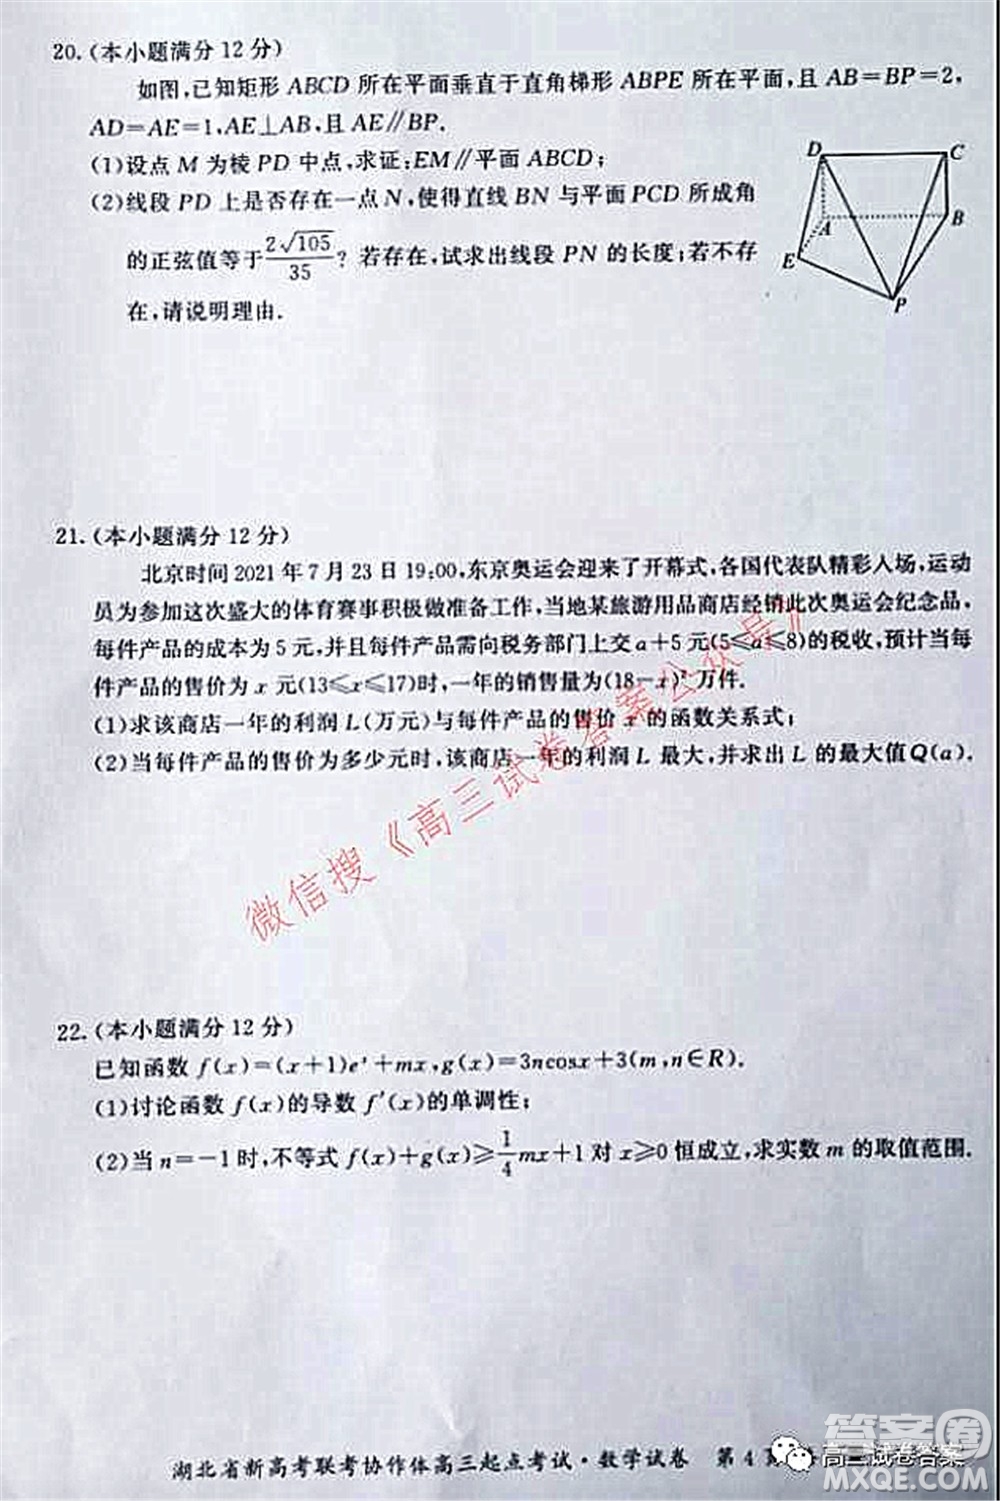 20.(本小题满分12分)
如图,已知矩形ABCD所在平面垂直于直角梯形ABPE所在平面,且AB=BP=2,
AD=AE=1,AE⊥AB,且AE∥BP.
(1)设点M为棱PD中点,求证:EM∥平面ABCD;
(2)线段PD上是否存在一点N,使得直线BN与平面PCD所成角
的正弦值等于2√105/35?若存在,试求出线段PN的长度;若不存
在,请说明理由.
D
C
A
B
E
P
21.(本小题满分12分)
北京时间2021年7月23日19:00,东京奥运会迎来了开幕式,各国代表队精彩入场,运动
员为参加这次盛大的体育赛事积极做准备工作,当地某旅游用品商店经销此次奥运会纪念品,
每件产品的成本为5元,并且每件产品需向税务部门上交a+5元(5≤a≤8)的税收,预计当每
件产品的售价为x元(13≤x≤17)时,一年的销售量为(18-x)²万件.
(1)求该商店一年的利润L(万元)与每件产品的售价x的函数关系式;
(2)当每件产品的售价为多少元时,该商店一年的利润L最大,并求出L的最大值Q(a).
微信搜《高三试卷答案公众号》
22.(本小题满分12分)
已知函数f(x)=(x+1)eˣ+mx,g(x)=3ncosx+3(m,n∈R).
(1)讨论函数f(x)的导数f′(x)的单调性;
(2)当n=-1时,不等式f(x)+g(x)≥1/4mx+1对x≥0恒成立,求实数m的取值范围.
湖北省新高考联考协作体高三起点考试·数学试卷 第4页
高三试卷答案
答案圈
MXQE.COM